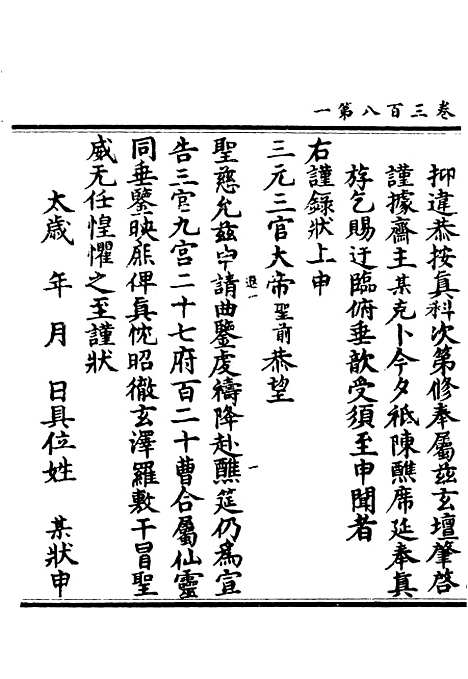 卷三百八第一
抑違恭按真科次第修奉屬兹玄壇肇啓
謹據齋主某克卜今夕祇陳醮席延奉真
斿乞賜迂臨俯垂歆受須至申聞者
右謹錄狀上申
三元三官大帝聖前恭望
聖慈允兹申請曲鑒虔禱降赴醮筵仍爲宣
告三官九宫二十七府百二十曹合屬仙靈
同垂鑒映庶俾真忱昭徹玄澤羅敷干冒聖
威无任惶懼之至謹狀
太歲 年 月 日具位姓 某狀申